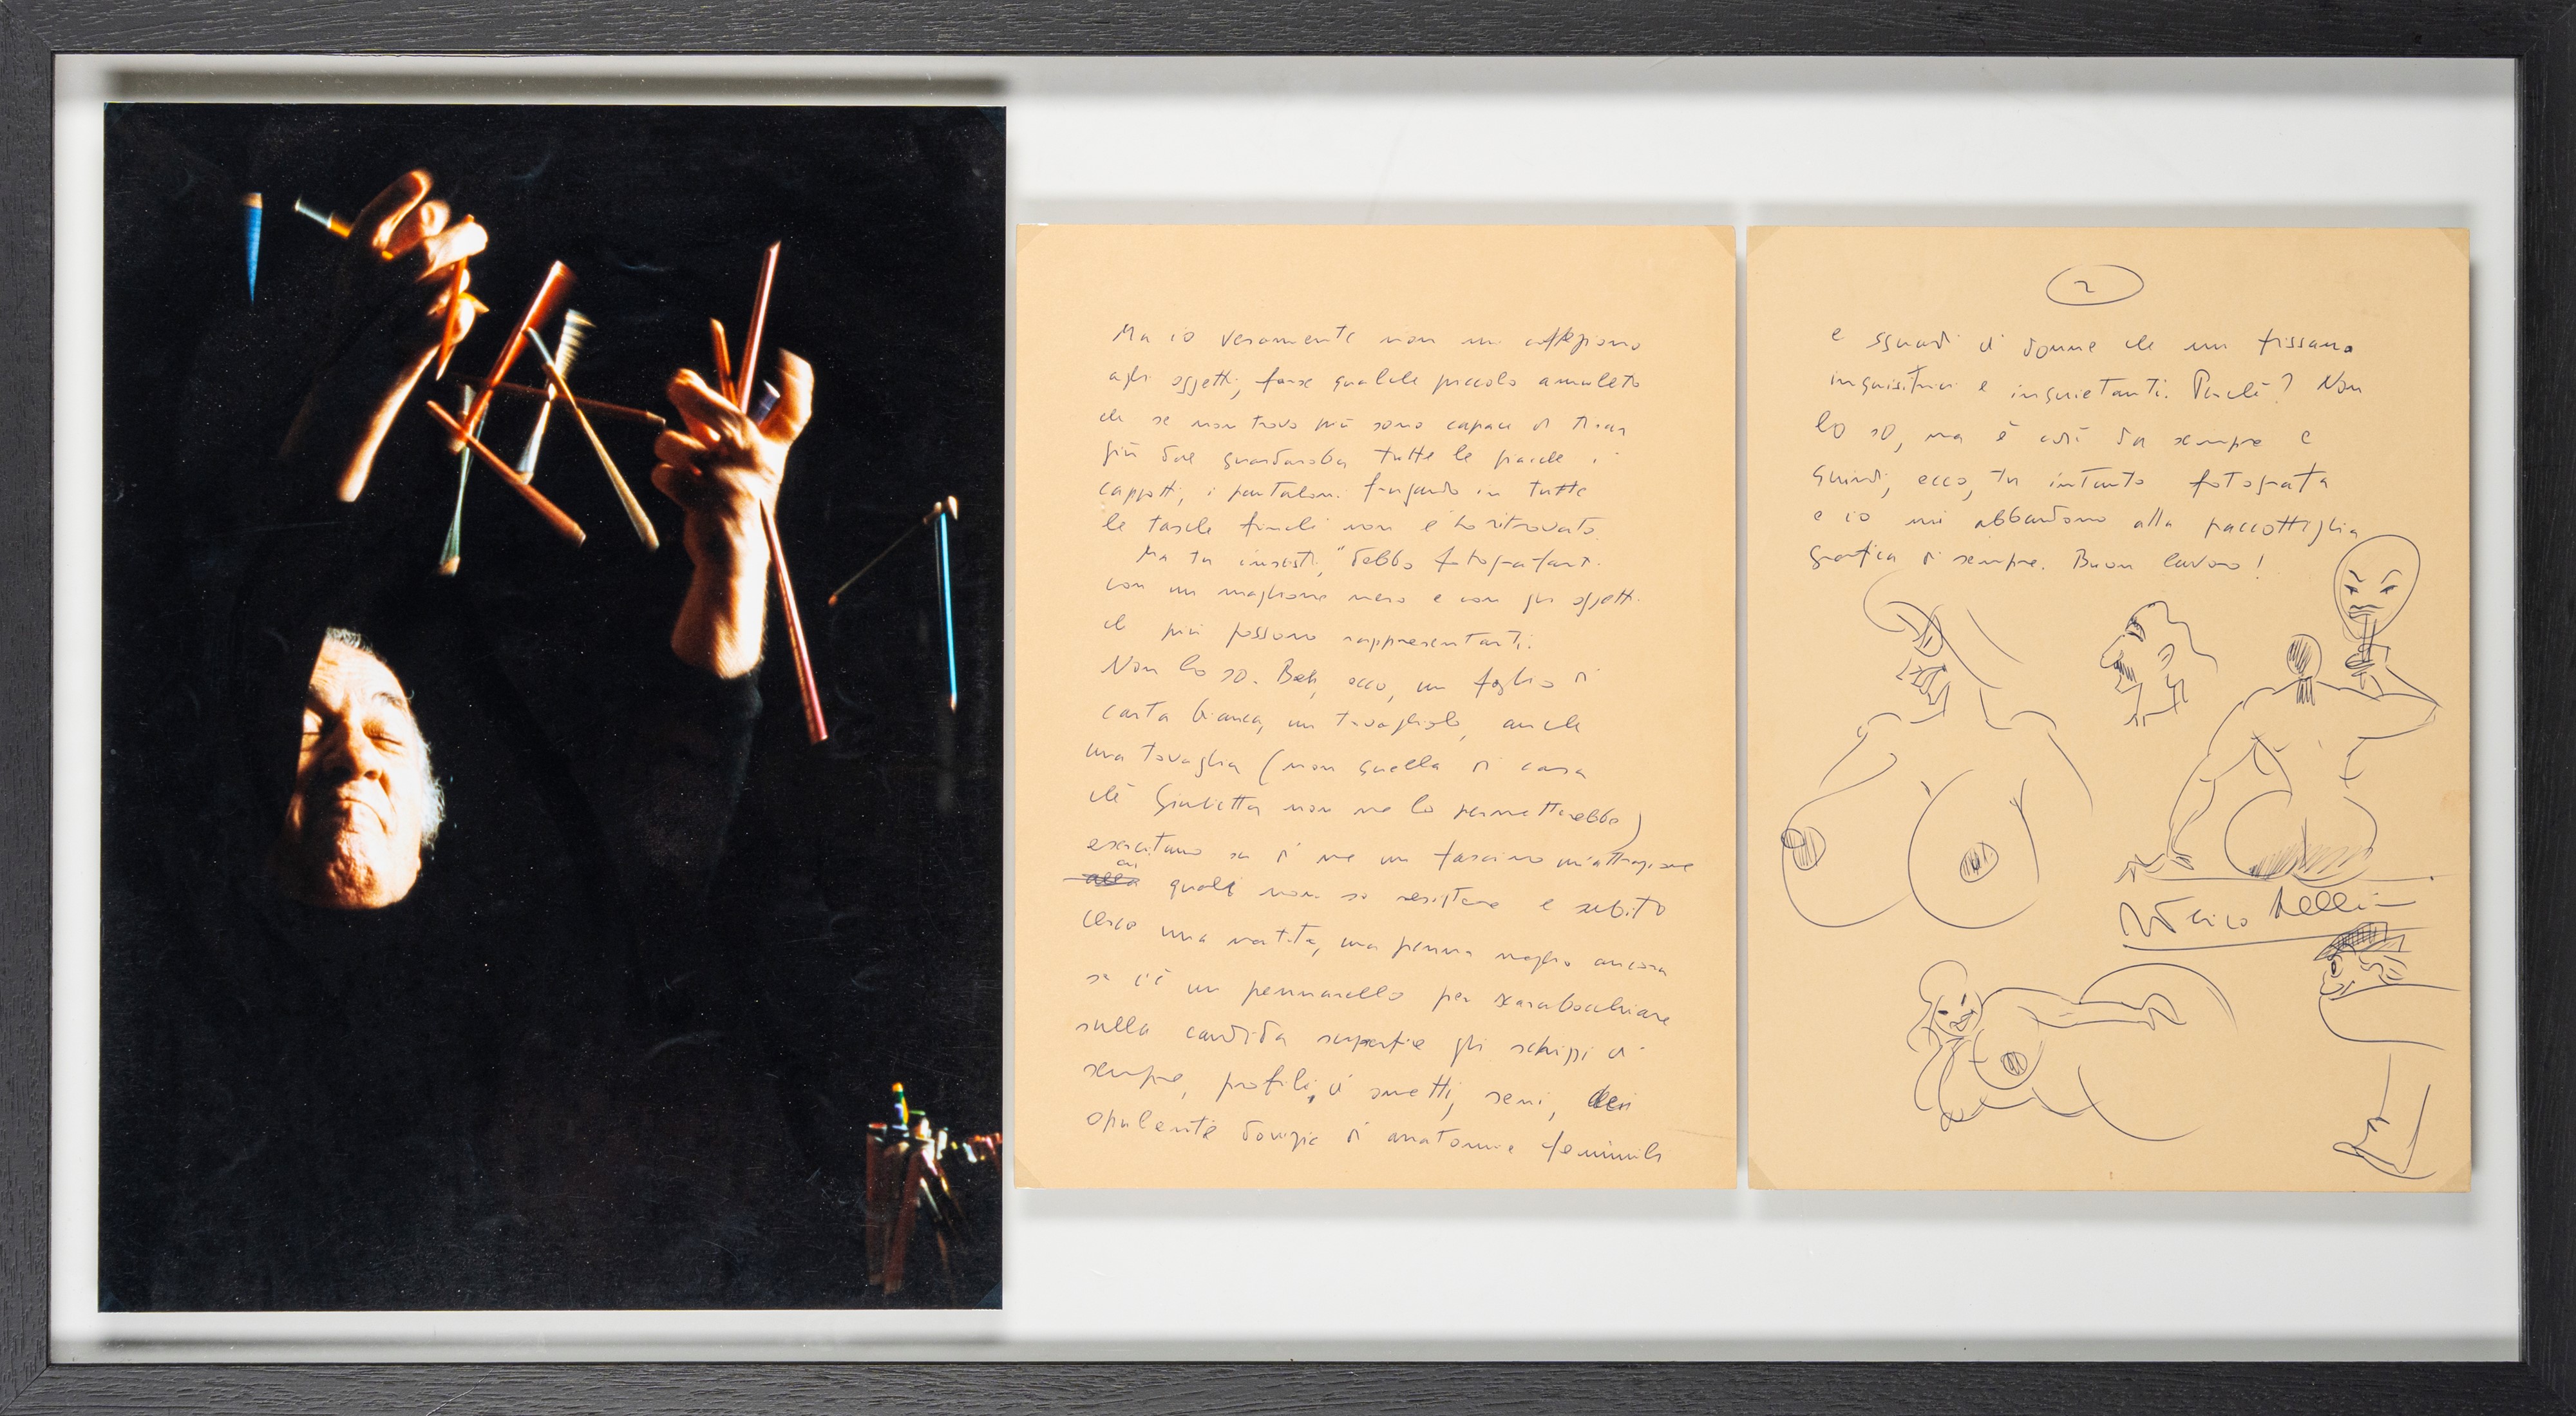 Ma io veramente non mi affeziono
agli oggetti, forse qualche piccolo amuleto
che se non trovo più sono capace di tirar
giù dal guardaroba tutte le giacche i
cappotti, i pantaloni frugando in tutte
le tasche finché non l'ho ritrovato.
Ma tu insisti, "debbo fotografarti
con un maglione nero e con gli oggetti
che più possono rappresentarti.
Non lo so. Beh, ecco, un foglio di
carta bianca, un tovagliolo, anche
una tovaglia (non quella di casa
ché Giulietta non me lo permetterebbe)
esercitano su di me un fascino un'attrazione
ai quali non so resistere e subito
cerco una matita, una penna meglio ancora
se c'è un pennarello per scarabocchiare
sulla candida superficie gli schizzi di
sempre, profili, di ometti, seni,
opulente dovizie di anatomie femminili
2
e sguardi di donne che mi fissano
inquisitrici e inquietanti. Perché? Non
lo so, ma è così da sempre e
quindi, ecco, tu intanto fotografa
e io mi abbandono alla paccottiglia
grafica di sempre. Buon lavoro!
Federico Fellini